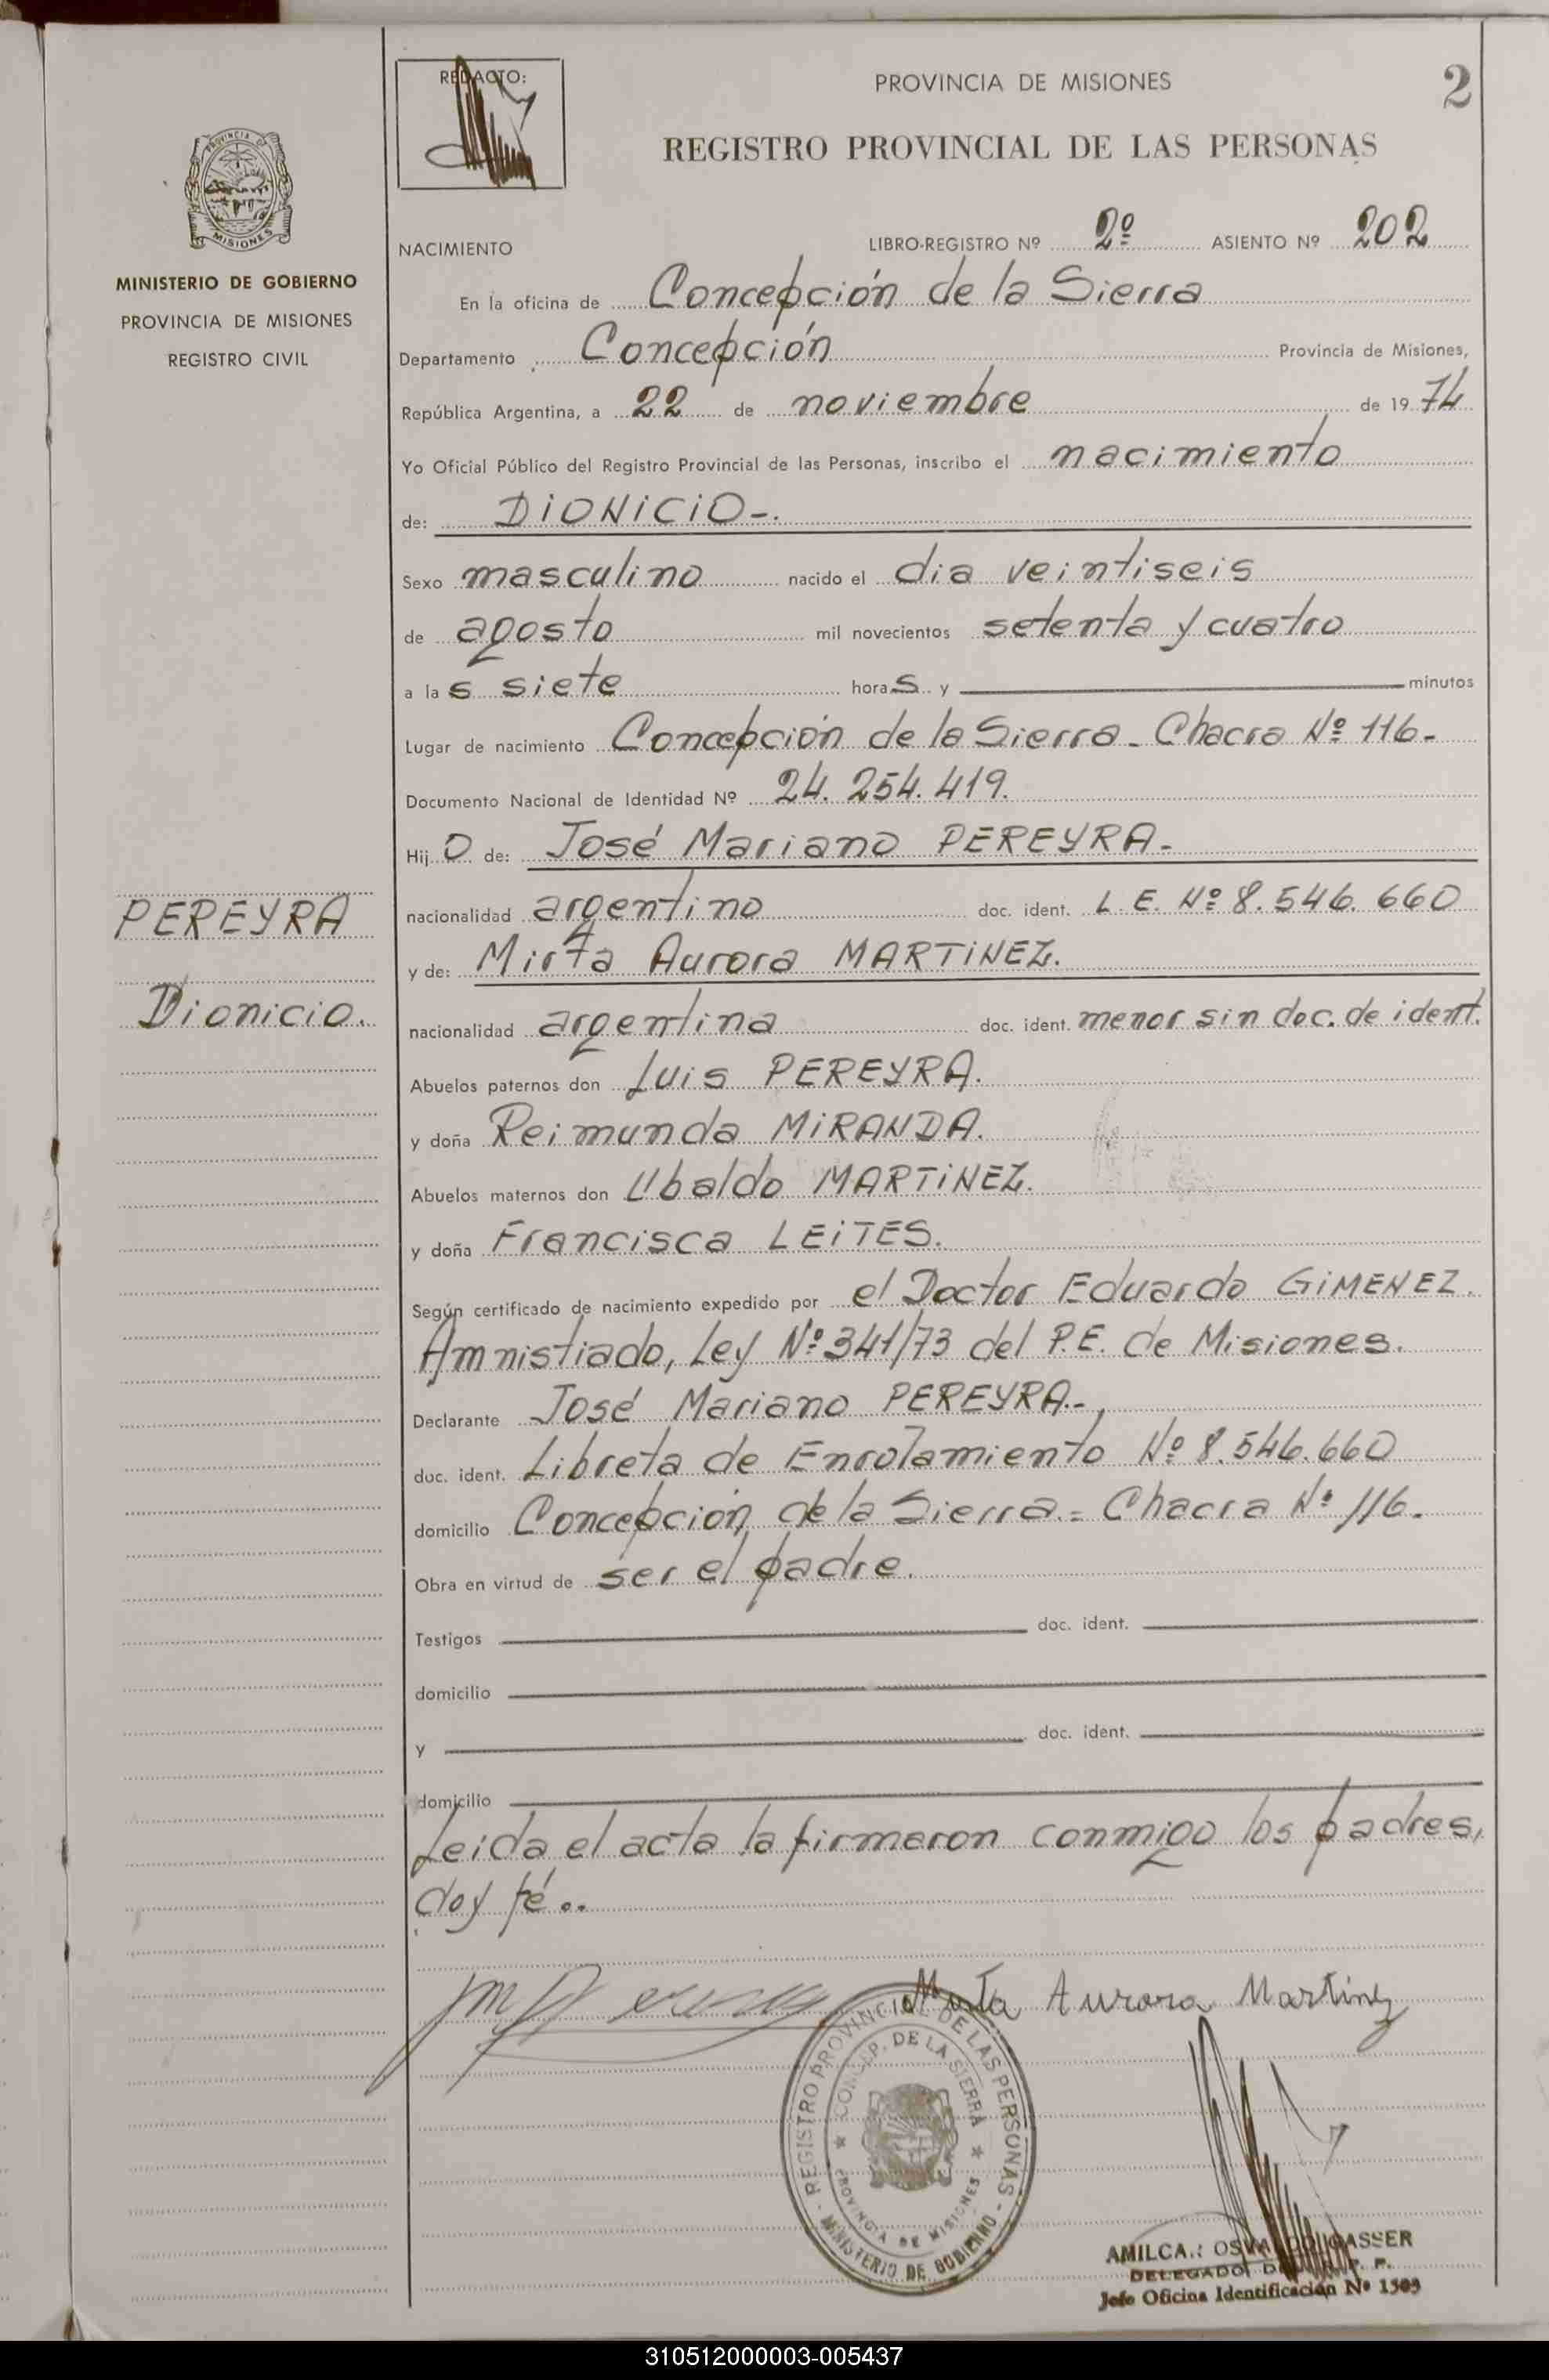 REDACTO:
PROVINCIA DE MISIONES
2
REGISTRO PROVINCIAL DE LAS PERSONAS
PROVINCIA DE
MISIONES
MINISTERIO DE GOBIERNO
PROVINCIA DE MISIONES
REGISTRO CIVIL
NACIMIENTO LIBRO-REGISTRO Nº 2º ASIENTO Nº 202
En la oficina de Concepción de la Sierra
Departamento Concepción Provincia de Misiones,
República Argentina, a 22 de noviembre de 1974
Yo Oficial Público del Registro Provincial de las Personas, inscribo el nacimiento
de: DIONICIO-.
Sexo masculino nacido el dia veintiseis
de agosto mil novecientos setenta y cuatro
a las siete horas y minutos
Lugar de nacimiento Concepción de la Sierra - Chacra Nº 116-
Documento Nacional de Identidad Nº 24.254.419.
Hijo de: José Mariano PEREYRA-
nacionalidad argentino doc. ident. L.E. Nº 8.546.660
PEREYRA
y de: Mirta Aurora MARTINEZ.
Dionicio.
nacionalidad argentina doc. ident. menor sin doc. de ident.
Abuelos paternos don Luis PEREYRA.
y doña Reimunda MIRANDA.
Abuelos maternos don Ubaldo MARTINEZ.
y doña Francisca LEITES.
Según certificado de nacimiento expedido por el Doctor Eduardo GIMENEZ.
Amnistiado, Ley Nº 341/73 del P.E. de Misiones.
Declarante José Mariano PEREYRA-,
doc. ident. Libreta de Enrolamiento Nº 8.546.660
domicilio Concepción de la Sierra = Chacra Nº 116.
Obra en virtud de ser el padre.
Testigos doc. ident.
domicilio
y doc. ident.
domicilio
Leida el acta la firmaron conmigo los padres,
doy fé..
Mirta Aurora Martinez
REGISTRO PROVINCIAL DE LAS PERSONAS - MINISTERIO DE GOBIERNO -
CONCEP. DE LA SIERRA
PROVINCIA DE MISIONES
AMILCA.: OSVALDO GASSER
DELEGADO P. P.
Jefe Oficina Identificación Nº 1503
310512000003-005437